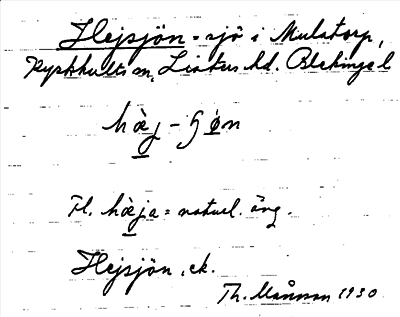 Hejsjön = sjö i Mulatorp,
Kyrkhults sn, Listers hd. Blekinge l
hæj - ɧøn
Tl. hæja = naturl. äng.
Hejsjön, ek.
Th. Månsson 1930